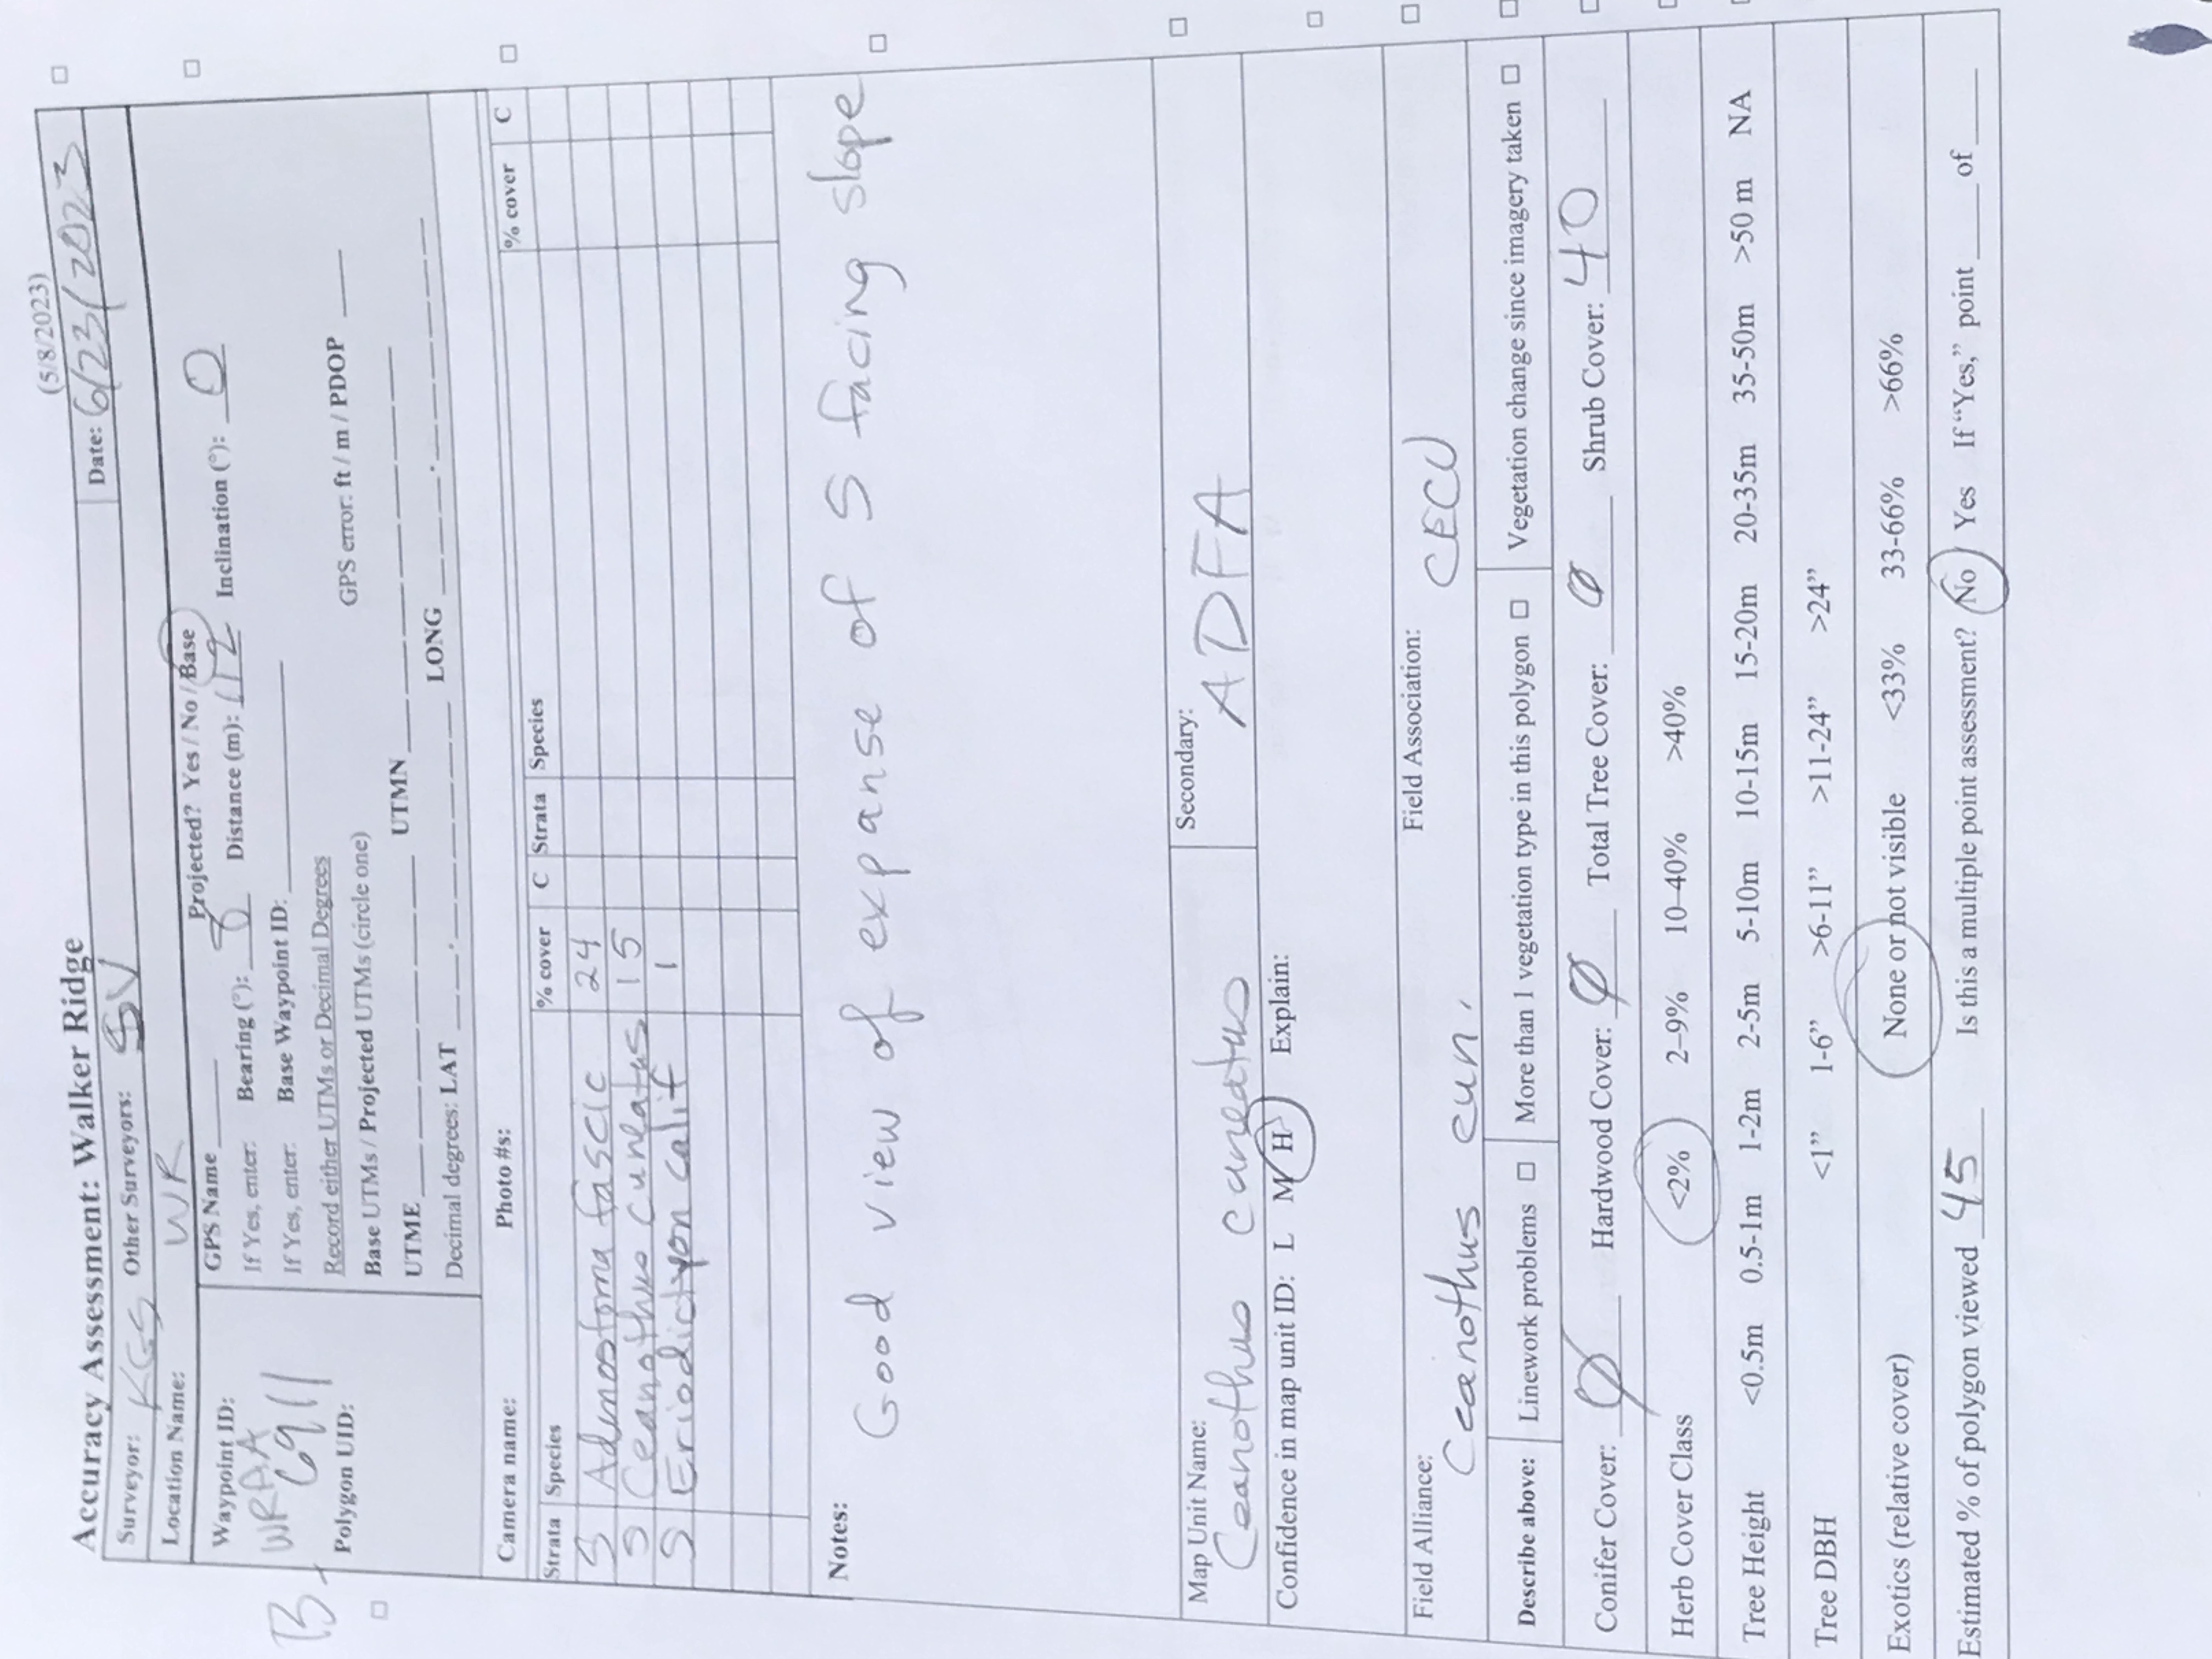 (5/8/2023)
Accuracy Assessment: Walker Ridge
Surveyor: KGS Other Surveyors: SV Date: 6/23/2023
Location Name: WR
Waypoint ID: WRAA
B
Polygon UID:
GPS Name ____ Projected? Yes / No / Base
If Yes, enter: Bearing (°): Distance (m): Inclination (°): 0
If Yes, enter: Base Waypoint ID: ____
Record either UTMs or Decimal Degrees
Base UTMs / Projected UTMs (circle one) GPS error: ft / m / PDOP ____
UTME ____ UTMN ____
Decimal degrees: LAT ____ LONG ____
Camera name: Photo #s:
Strata Species % cover C Strata Species % cover C
S Adenostoma fascic 24
S Ceanothus cuneatus 15
S Eriodictyon calif 1
Notes:
Good view of expanse of S facing slope
Map Unit Name: Secondary:
Ceanothus cuneatus ADFA
Confidence in map unit ID: L M H Explain:
Field Alliance: Field Association:
Ceanothus cun. CECU
Describe above: Linework problems □ More than 1 vegetation type in this polygon □ Vegetation change since imagery taken □
Conifer Cover: Ø Hardwood Cover: Ø Total Tree Cover: Ø Shrub Cover: 40
Herb Cover Class <2% 2-9% 10-40% >40%
Tree Height <0.5m 0.5-1m 1-2m 2-5m 5-10m 10-15m 15-20m 20-35m 35-50m >50 m NA
Tree DBH <1” 1-6” >6-11” >11-24” >24”
Exotics (relative cover) None or not visible <33% 33-66% >66%
Estimated % of polygon viewed 45 Is this a multiple point assessment? No Yes If “Yes,” point ____ of ____